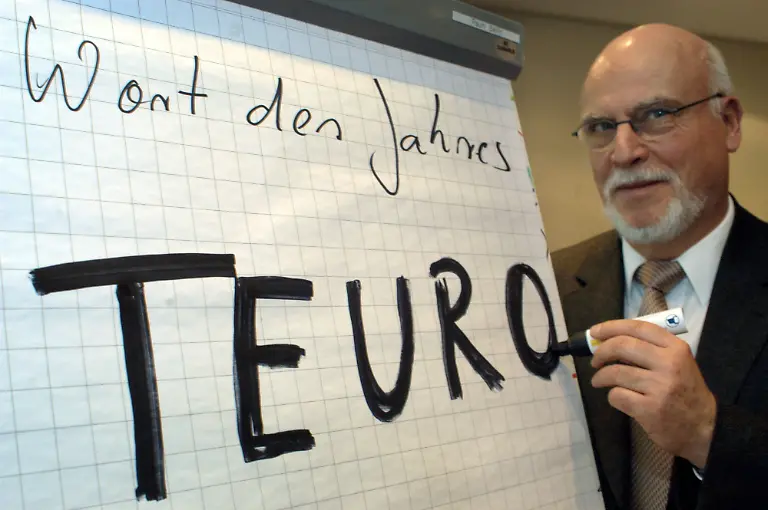 Wort des Jahres
TEURO